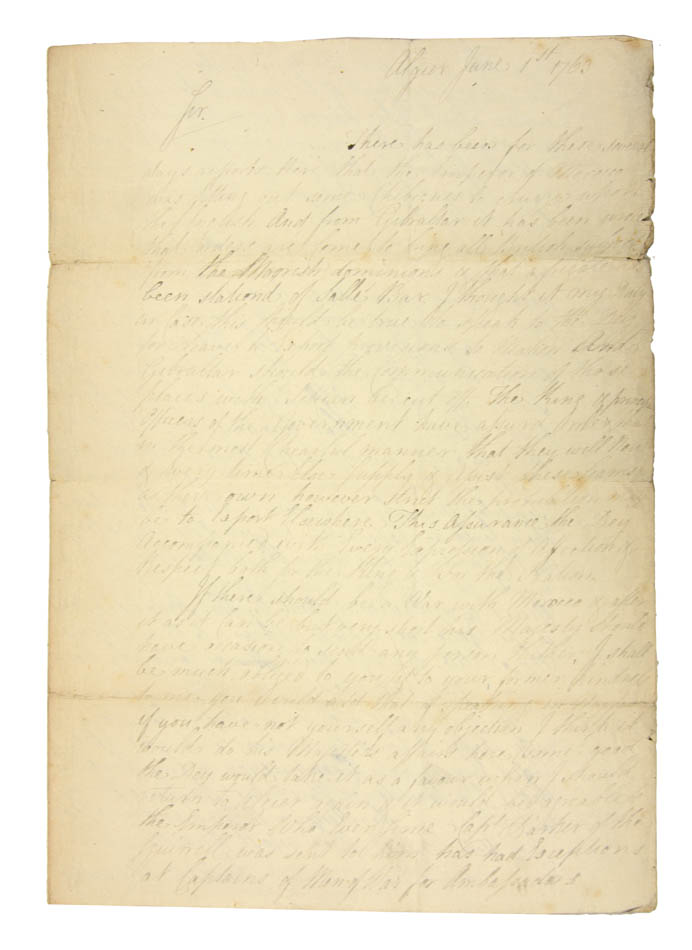 Algier June 1st 176
Sir.
There has been for these several
days reports here that the Emperor of Morocco
was fitting out some to cruize upon
the English And from Gibraltar it has been
that orders are come to bring all British subjects
from the Moorish dominions & that a
been stationd of Sallé Bar, I thought it my Duty
in Case this should be true to speak to the Dey
for leave to Export provisions to Mahon And
Gibraltar should the communication of those
places with be cut of. The King & principal
Officers of the Government have assurd
in the most Chearful manner that they will Now
& every time else supply & assist
as their own however strict the may
be to Export Elsewhere. This Assurance the Dey
Accompanied with Every Expression of Affection &
Respect both to the King & the Nation.
If there should be a War with Morocco & after
it as it can be but very short his Majesty should
have occasion to send any person thither, I shall
be much obliged to you if to your former kindness
to me you would add that of
if you have not yourself any objection I think it
would do his Majesties affairs here some good
the Dey would take it as a favour when I should
return to Algier again & it would be agreeable to
the Emperor who Ever since Captn Barker of the
Squirrell was sent to him has had Exceptions
at Captains of Men of War for Ambassadors